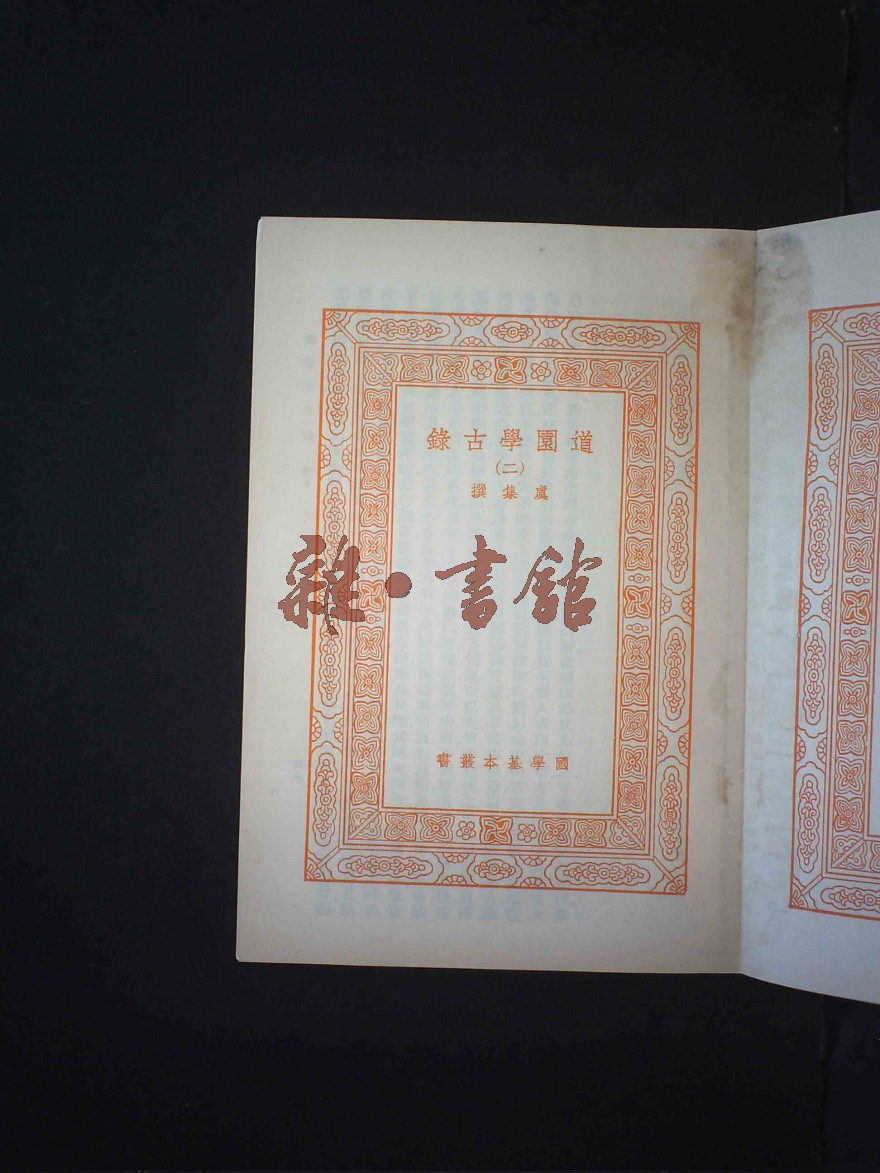 道園學古錄
(二)
虞集撰
雜·書館
國學基本叢書